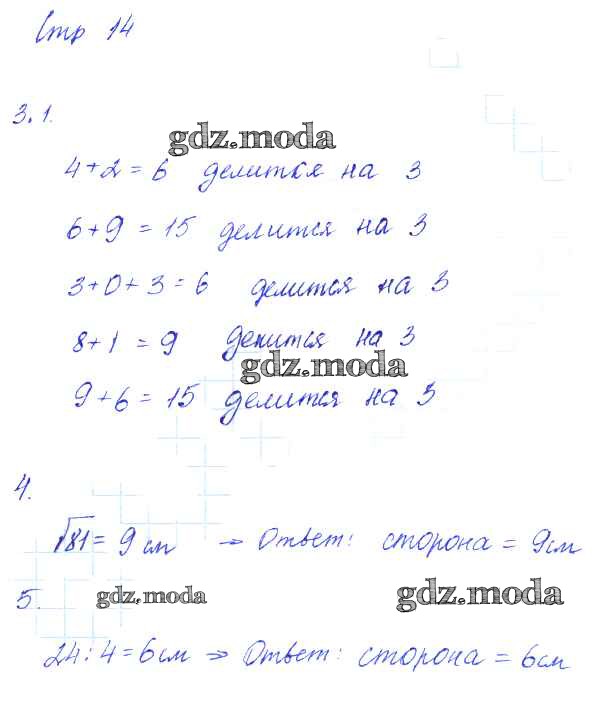 Стр 14
3.1.
gdz.moda
4+2 = 6 делится на 3
6+9 = 15 делится на 3
3+0+3 = 6 делится на 3
8+1 = 9 делится на 3
gdz.moda
9+6 = 15 делится на 3
4.
√81 = 9 см → Ответ: сторона = 9см
5.
gdz.moda
gdz.moda
24:4=6см ⇒ Ответ: сторона = 6см